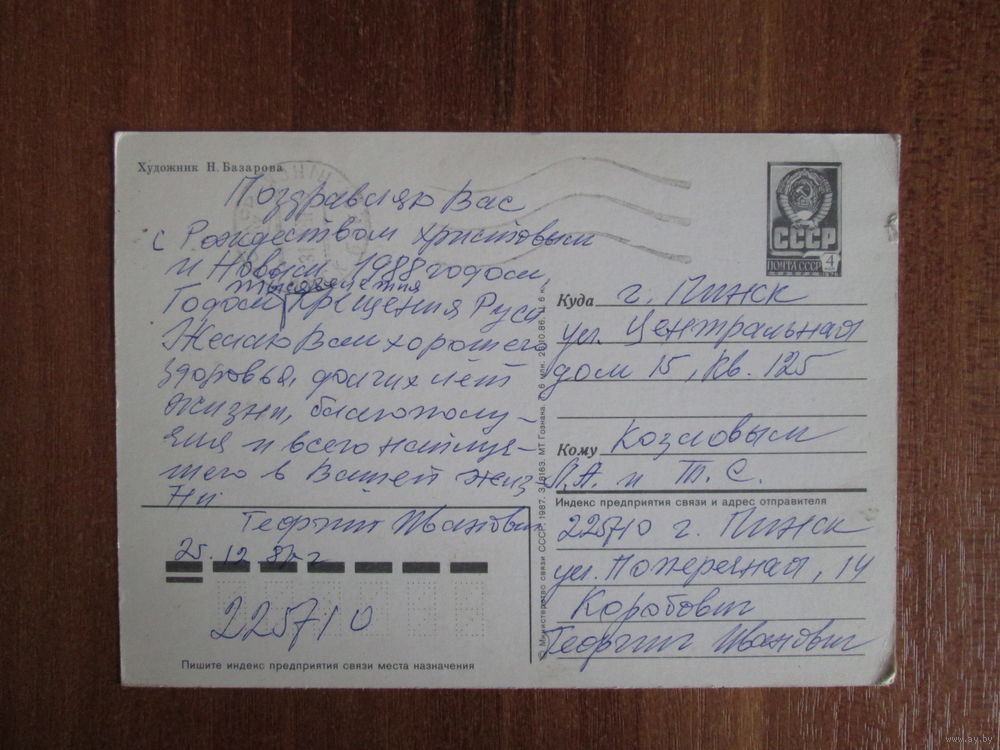 Художник Н. Базарова
Поздравляю Вас
с Рождеством христовым
и Новым 1988 годом,
тысячелетия
Годом Крещения Руси
Желаю Вам хорошего
здоровья, долгих лет
жизни, благополу-
чия и всего наилуч-
шего в Вашей жиз-
ни.
Георгий Иванович
25. 12 87 г
225710
Пишите индекс предприятия связи места назначения
© Министерство связи СССР, 1987. З. 8163. МТ Гознака.
СССР
ПОЧТА СССР 4
Куда г. Пинск
ул. Центральная
дом 15, кв. 125
Кому Козловым
Л.А. и Т. С.
Индекс предприятия связи и адрес отправителя
225710 г. Пинск
ул. Поперечная, 14
Коробович
Георгий Иванович
www.ay.by